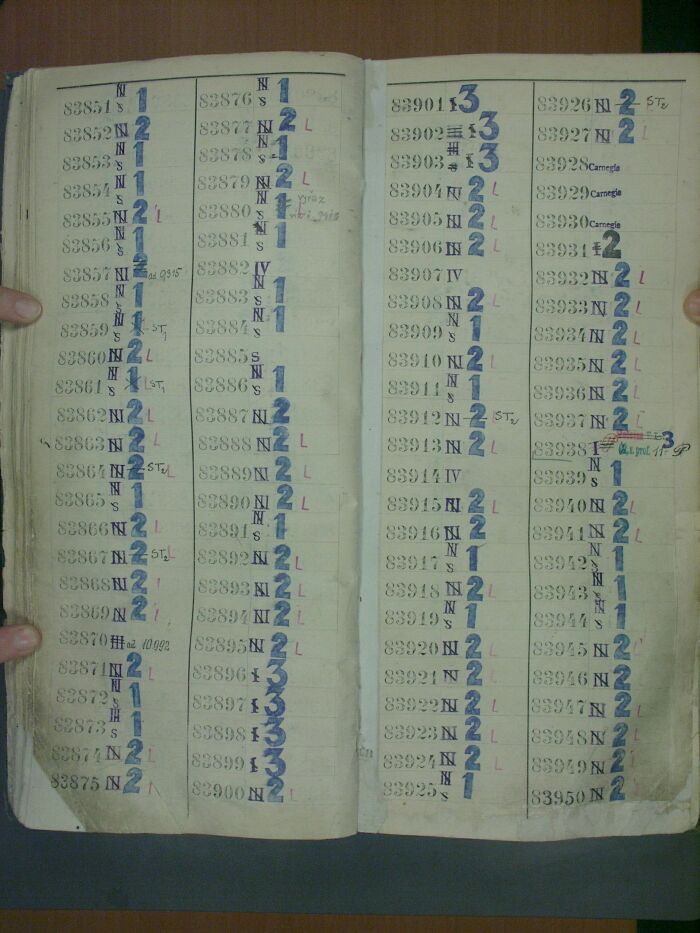 83851 N S 1
83852 N 2
83853 N S 1
83854 N S 1
83855 N 2 L
83856 N S 1
83857 N 2 ad 9315
83858 N S 1
83859 N S 1 ST1
83860 N 2 L
83861 N S 1 L ST1
83862 N 2 L
83863 N 2 L
83864 N 2 ST2 L
83865 N S 1
83866 N 2 L
83867 N 2 ST2 L
83868 N 2 L
83869 N 2 L
83870 III ad 10992
83871 N 2 L
83872 N S 1
83873 III S 1
83874 N 2 L
83875 N 2 L
83876 N S 1
83877 N 2 L
83878 N S 1
83879 N 2 L
83880 N S 1
83881 N S 1
83882 IV
83883 N S 1
83884 N S 1
83885 S
83886 N S 1
83887 N 2
83888 N 2 L
83889 N 2 L
83890 N 2 L
83891 N S 1
83892 N 2 L
83893 N 2 L
83894 N 2 L
83895 N 2 L
83896 I 3
83897 I 3
83898 I 3
83899 I 3
83900 N 2 L
83901 I 3
83902 I 3
83903 I 3
83904 N 2 L
83905 N 2 L
83906 N 2 L
83907 IV
83908 N 2 L
83909 N S 1
83910 N 2 L
83911 N S 1
83912 N 2 ST2
83913 N 2 L
83914 IV
83915 N 2 L
83916 N 2
83917 N S 1
83918 N 2 L
83919 N S 1
83920 N 2 L
83921 N 2 L
83922 N 2 L
83923 N 2 L
83924 N 2 L
83925 N S 1
83926 N 2 ST2
83927 N 2 L
83928 Carnegie
83929 Carnegie
83930 Carnegie
83931 I 2
83932 N 2 L
83933 N 2 L
83934 N 2 L
83935 N 2 L
83936 N 2 L
83937 N 2 L
83938 I 3
83939 N S 1
83940 N 2 L
83941 N 2 L
83942 N S 1
83943 N S 1
83944 N S 1
83945 N 2 L
83946 N 2
83947 N 2 L
83948 N 2 L
83949 N 2 L
83950 N 2 L